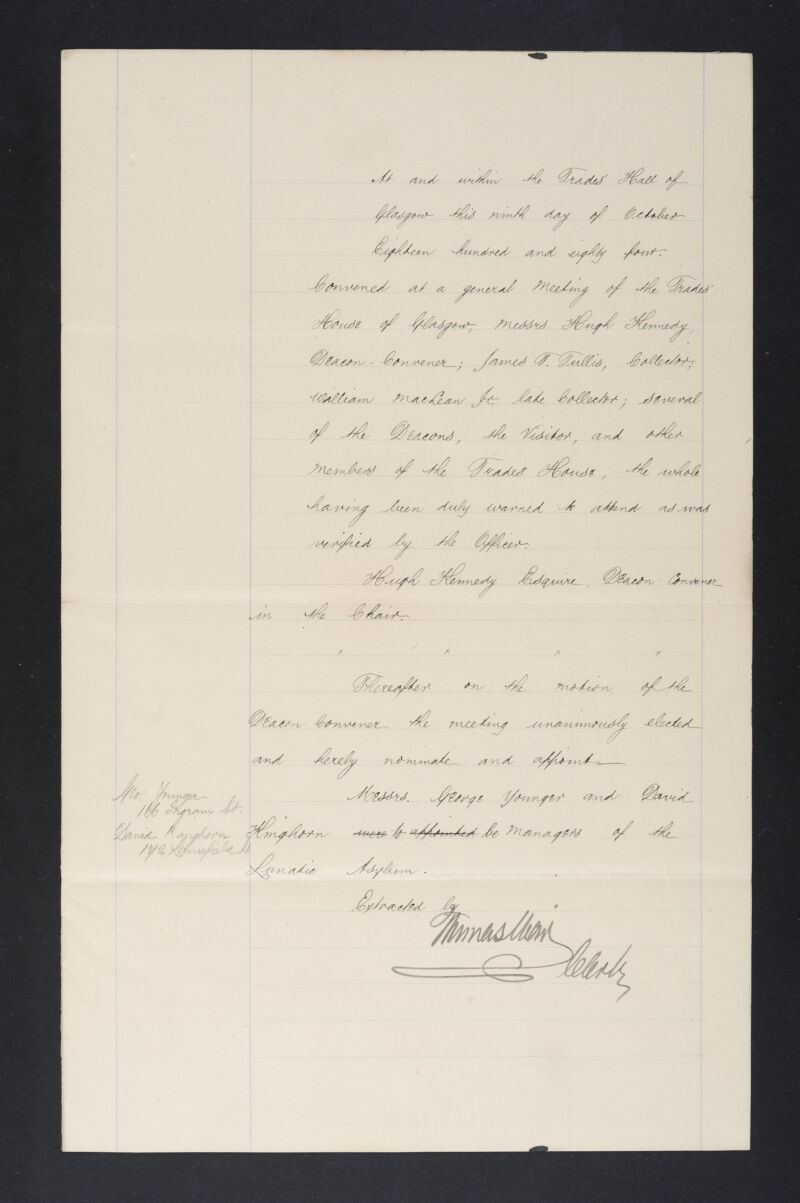 At and within the Trades' Hall of
Glasgow this ninth day of October
Eighteen hundred and eighty four.
Convened at a general Meeting of the Trades'
House of Glasgow, Messrs. Hugh Kennedy,
Deacon-Convener; James T. Tullis, Collector;
William MacLean Jr. late Collector; several
of the Deacons, the Visitor, and other
Members of the Trades House, the whole
having been duly warned to attend as was
verified by the Officer.
Hugh Kennedy Esquire, Deacon-Convener
in the Chair.
x x x x
Thereafter on the motion of the
Deacon-Convener the meeting unanimously elected
and hereby nominate and appoint—
Messrs. George Younger and David
Kinghorn were to appointed be Managers of the
Lunatic Asylum.
Extracted by
Thomas Clerk
Geo. Younger
166 Ingram St.
David Kinghorn
172 Lancefield St